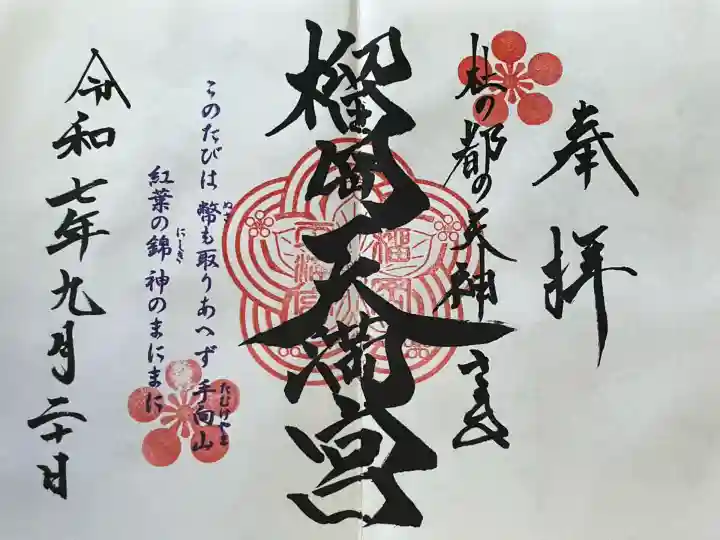 奉拝
杜の都の天神さま
榴岡天満宮
このたびは 幣も取りあへず 手向山
ぬさ
たむけやま
紅葉の錦 神のまにまに
にしき
令和七年九月二十日